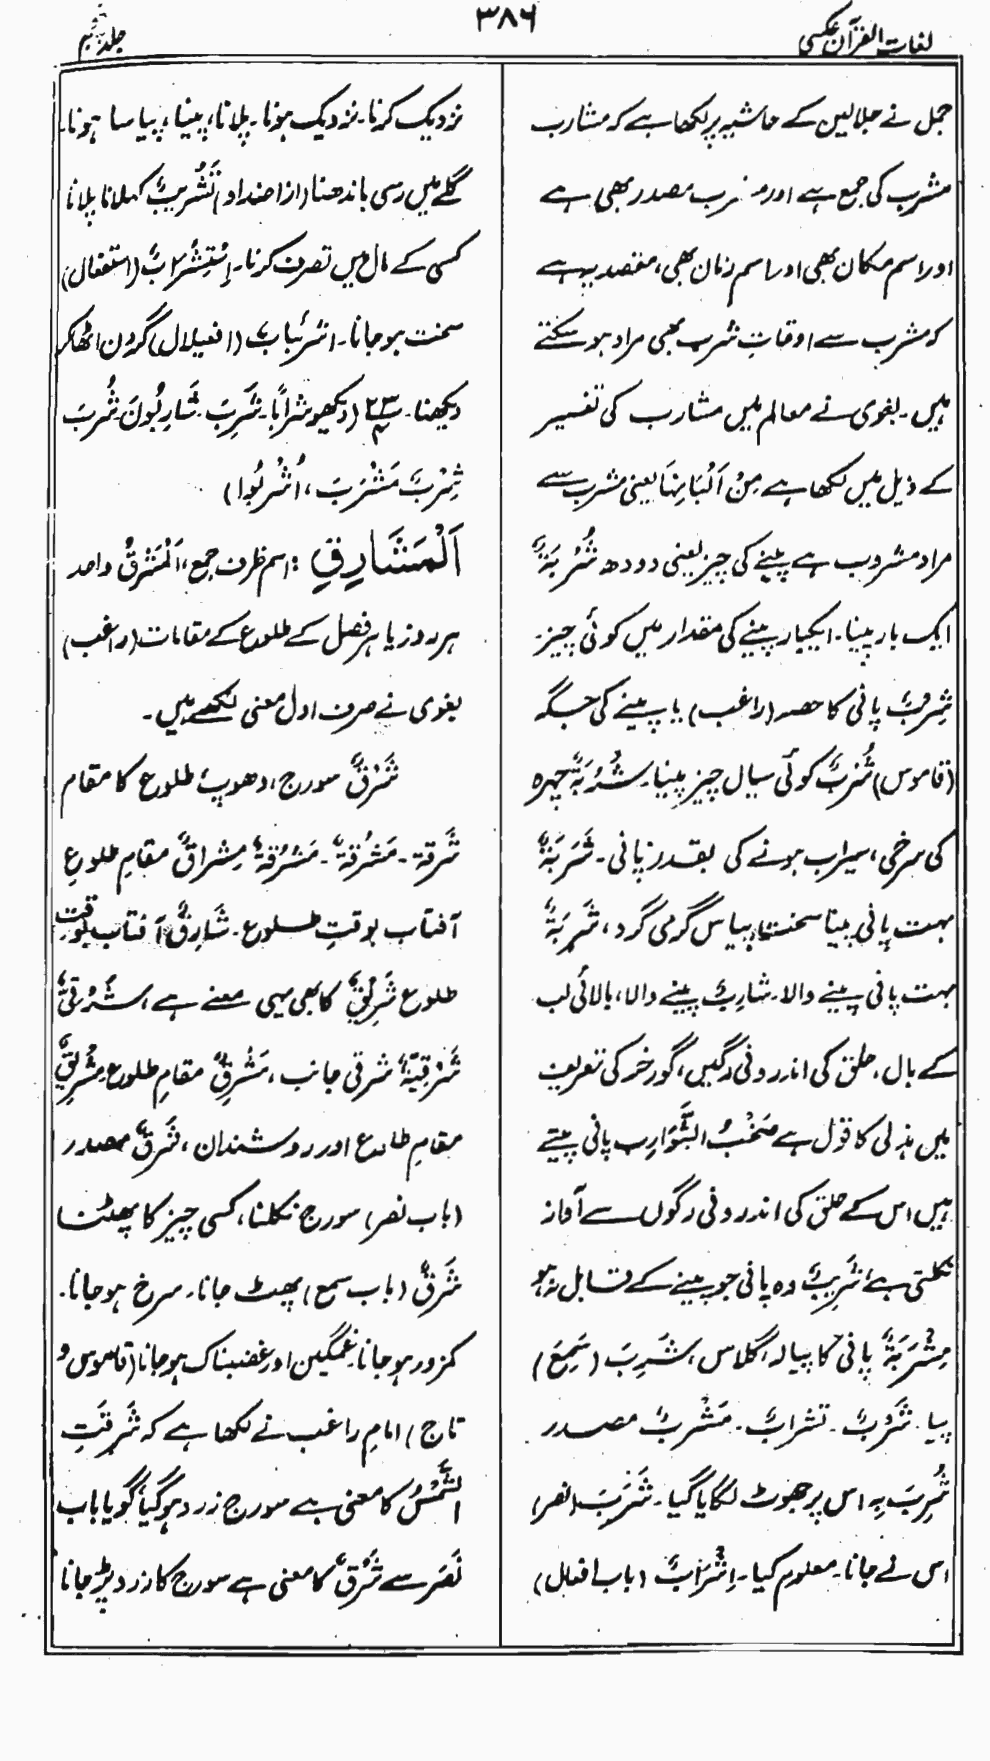 لغات القرآن عکسی
۳۸۶
جلد پنجم
جمل نے جلالین کے حاشیہ پر لکھا ہے کہ مشارب
مشرب کی جمع ہے اور مشرب مصدر بھی ہے
اور اسم مکان بھی اور اسم زمان بھی، مقصد یہ ہے
کہ مشرب سے اوقاتِ شرب بھی مراد ہو سکتے
ہیں۔ بغوی نے معالم میں مشارب کی تفسیر
کے ذیل میں لکھا ہے مِنْ اَلْبَانِہَا یعنی مشرب سے
مراد مشروب ہے پینے کی چیز یعنی دودھ شُرْبَۃٌ
ایک بار پینا۔ ایکبار پینے کی مقدار میں کوئی چیز۔
شِرْبٌ پانی کا حصہ (راغب) یا پینے کی جگہ
(قاموس) شُرْبٌ کوئی سیال چیز پینا۔ شُرْبَۃٌ چہرہ
کی سرخی، سیراب ہونے کی بقدر پانی۔ شَرَبَۃٌ
بہت پانی پینا سخت پیاس گرمی گرد، شَرِبَۃٌ
بہت پانی پینے والا۔ شارِبٌ پینے والا، بالائی لب
کے بال، حلق کی اندرونی رگیں، گورخر کی تعریف
میں ہذلی کا قول ہے صَخْبُ الشَّوَارِب پانی پیتے
ہیں اس کے حلق کی اندرونی رگوں سے آواز
نکلتی ہے شَرِیبٌ وہ پانی جو پینے کے قابل نہ ہو
مِشْرَبَۃٌ پانی کا پیالہ، گلاس، شَرِبَ (سَمِعَ)
پیا۔ شُرْبٌ۔ تشرابٌ۔ مَشْرَبٌ مصدر۔
شُرِبَ بِہِ اس پر جھوٹ لگایا گیا۔ شَرَبَ (نصر)
اس نے جانا۔ معلوم کیا۔ اِشْرَابٌ (باب افعال)
نزدیک کرنا۔ نزدیک ہونا۔ پلانا، پینا، پیاسا ہونا۔
گلے میں رسی باندھنا (از اضداد) تَشْرِیبٌ کھلانا پلانا
کسی کے مال میں تصرف کرنا۔ اِسْتِشْرَابٌ (استفعال)
سخت ہو جانا۔ اشرئباب (افعیلال) گردن اٹھا کر
دیکھنا۔ (دیکھو شراباً۔ شَرِبَ۔ شَارِبُونَ شُرْبَ
شِرْبٌ مَشْرَبَ، اُشْرِبُوا)
اَلْمَشَارِقِ : اسم ظرف جمع، اَلْمَشْرِقُ واحد
ہر روز یا ہر فصل کے طلوع کے مقامات (راغب)
بغوی نے صرف اول معنی لکھے ہیں۔
شَرْقٌ سورج، دھوپ طلوع کا مقام
شَرقة۔ مَشْرُقَۃٌ۔ مَشْرَقَۃٌ مِشراقٌ مقامِ طلوعِ
آفتاب بوقتِ طلوع۔ شَارِقٌ آفتاب بوقت
طلوع شَرِیْقٌ کا بھی یہی معنے ہے، شَرْقِیٌّ
شَرْقِیَّۃٌ شرقی جانب، مَشْرِقٌ مقامِ طلوع مِشْرِیقٌ
مقامِ طلوع اور روشندان، شَرْقٌ مصدر
(باب نصر) سورج نکلنا، کسی چیز کا پھٹنا
شَرَقٌ (باب سمع) پھٹ جانا۔ سرخ ہو جانا۔
کمزور ہو جانا غمگین اور غضبناک ہو جانا (قاموس و
تاج) امام راغب نے لکھا ہے کہ شَرِقَتِ
الشَّمْسُ کا معنی ہے سورج زرد ہو گیا، گویا باب
نَصَرَ سے شَرْقٌ کا معنی ہے سورج کا زرد پڑ جانا